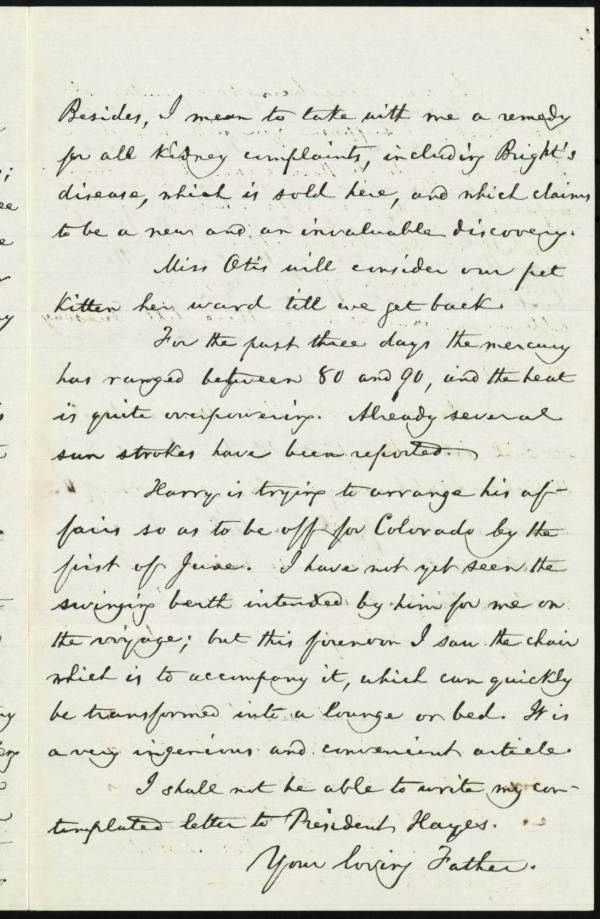 Besides, I mean to take with me a remedy
for all kidney complaints, including Bright's
disease, which is sold here, and which claims
to be a new and an invaluable discovery.
Miss Otis will consider our pet
kitten her ward till we get back.
For the past three days the mercury
has ranged between 80 and 90, and the heat
is quite overpowering. Already several
sun strokes have been reported.
Harry is trying to arrange his af-
fairs so as to be off for Colorado by the
first of June. I have not yet seen the
swinging berth intended by him for me on
the voyage; but this forenoon I saw the chair
which is to accompany it, which can quickly
be transformed into a lounge or bed. It is
a very ingenious and convenient article.
I shall not be able to write my con-
templated letter to President Hayes.
Your loving Father.